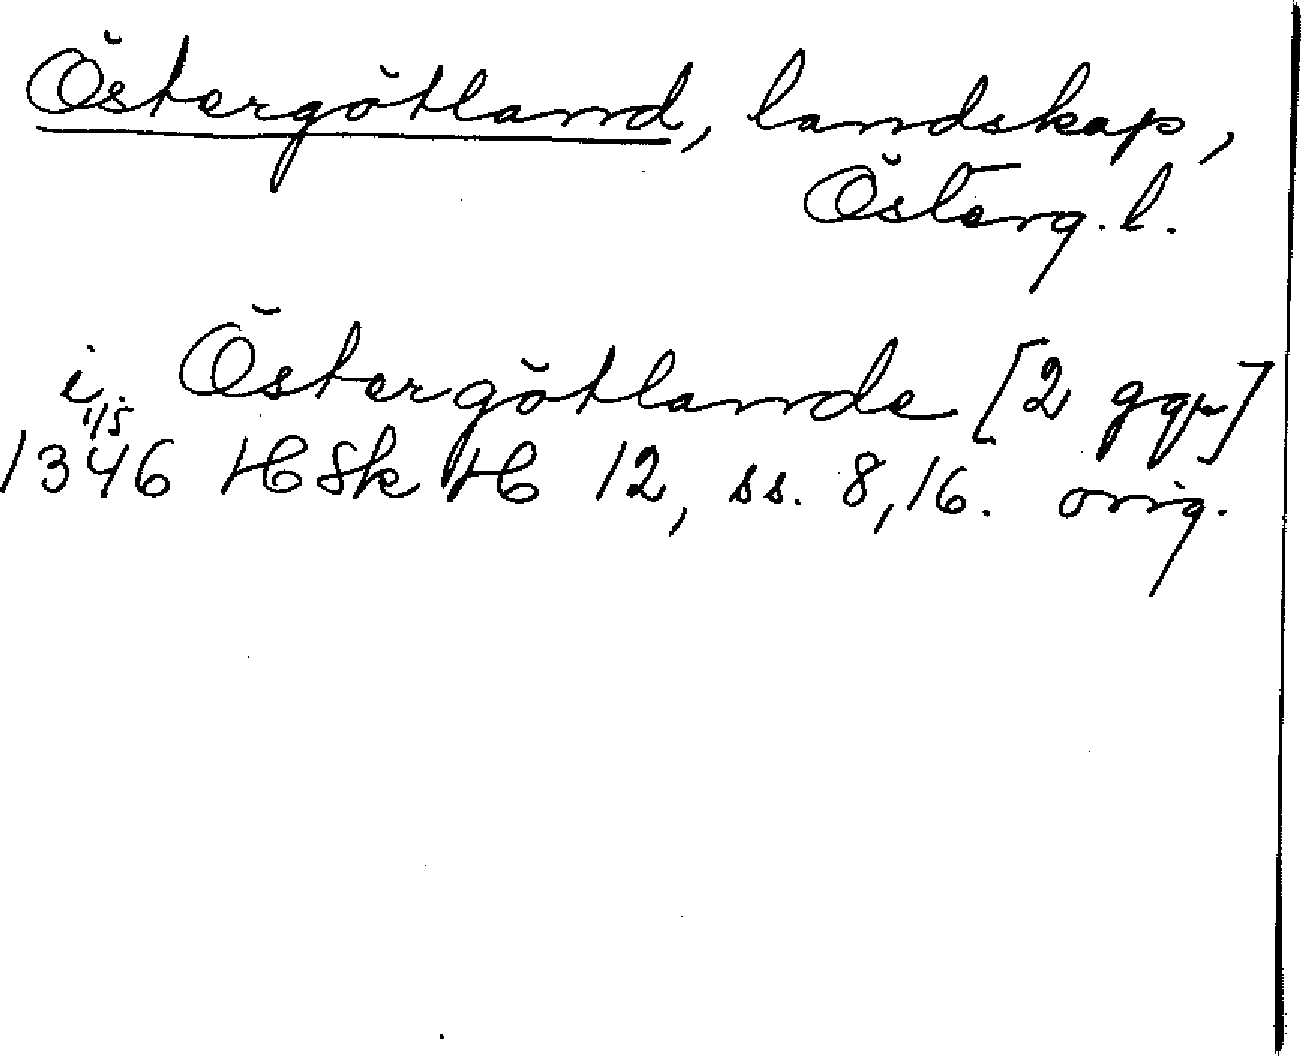 Östergötland, landskap,
Österg. l.
i Östergötlande [2 ggr]
1/5
1346 HSk H 12, ss. 8,16. orig.